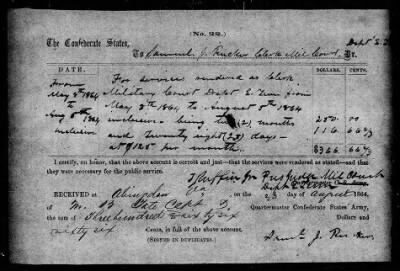 (No. 22.)
The Confederate States,
To Samuel J. Rucker Clerk Mil Court, Dr.
DATE. DOLLARS. CENTS.
From For services rendered as Clerk
May 8th 1864 Military Court Dept E. Tenn from
to May 8th 1864 to August 5th 1864
Aug 5th 1864 inclusive - being two (2) months 250 00
inclusive and twenty eight (28) days - 116 66 2/3
at $125 per month. $366 66 2/3
I certify, on honor, that the above account is correct and just—that the services were rendered as stated—and that
they were necessary for the public service.
Presidg Mil Court
Dept E Tenn
RECEIVED at Abingdon Va 8 of August 1864,
of Quartermaster Confederate States Army,
the sum of Three hundred & sixty six Dollars and
sixty six Cents, in full of the above account.
(SIGNED IN DUPLICATES.) Saml J. Rucker